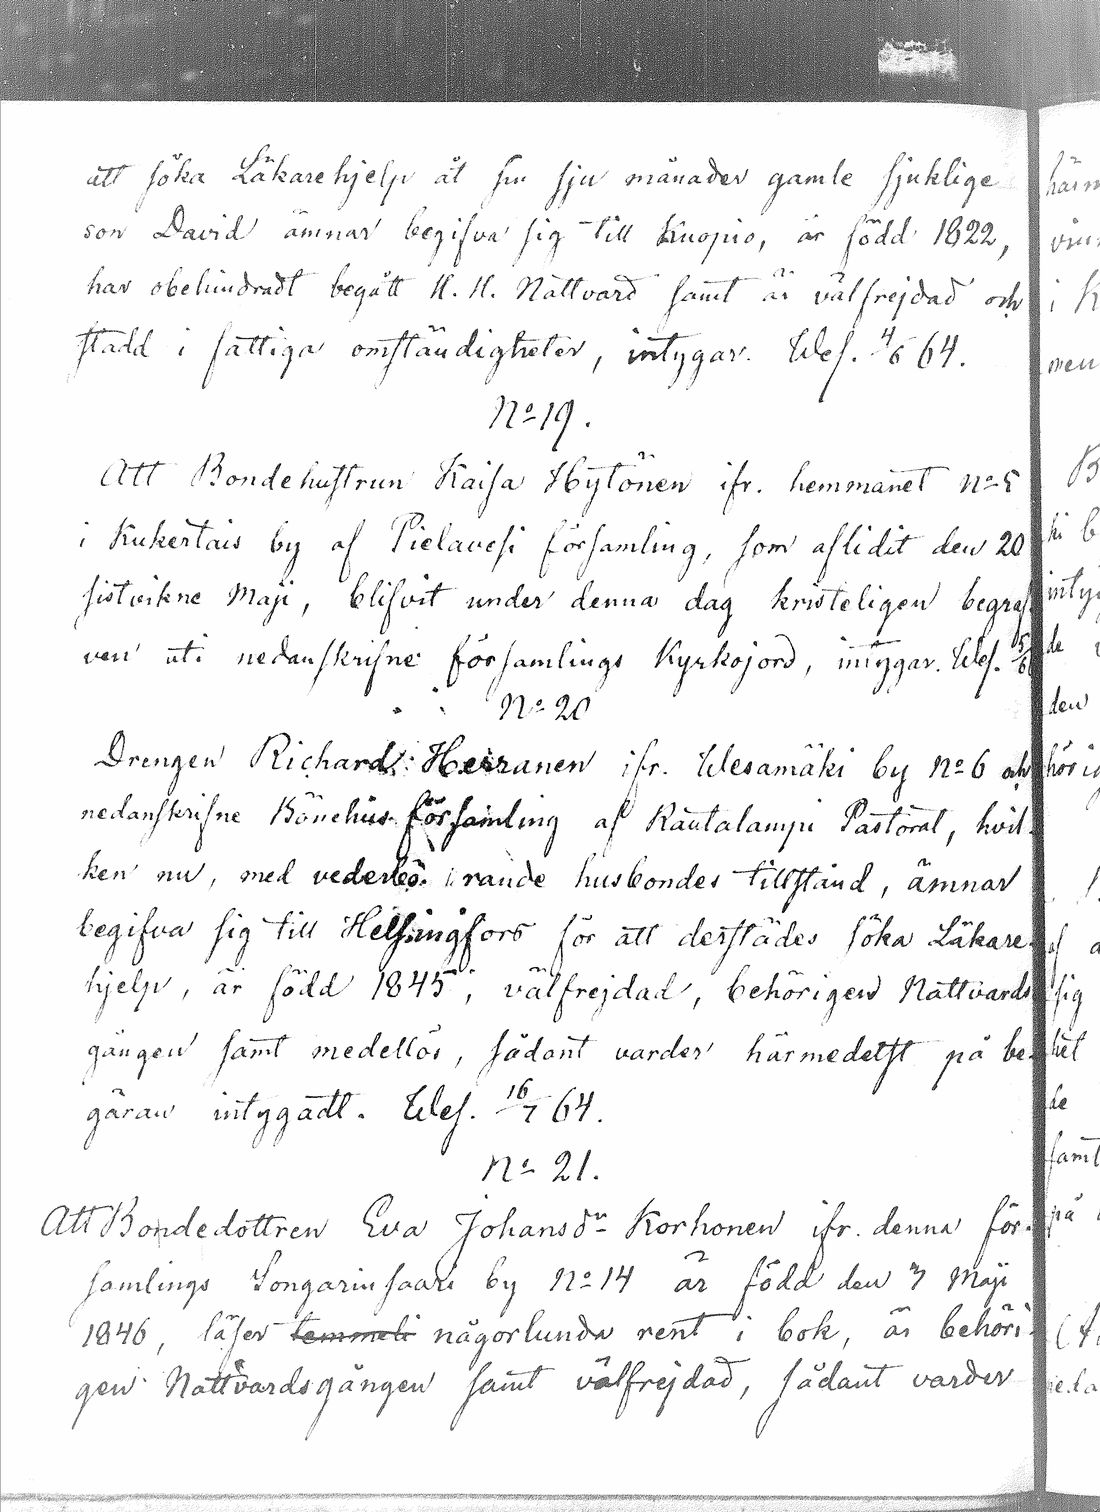 att söka Läkarehjelp åt sin sju månader gamle sjuklige
son David ämnar begifva sig till Kuopio, är född 1822,
har obehindradt begått H. H. Nattvard samt är välfrejdad och
stadd i fattiga omständigheter, intygar. Wes. 4/6 64.
No 19.
Att Bondehustrun Kaisa Hytönen ifr. hemmanet No 5
i Kukertais by af Pielavesi församling, som aflidit den 20
sistvikne Maji, blifvit under denna dag kristeligen begraf-
ven uti nedanskrifne församlings Kyrkojord, intygar. Wes. 5/6
No 20
Drengen Richard Herranen ifr. Wesamäki by No 6 och
nedanskrifne Bönehus församling af Rautalampi Pastorat, hvil-
ken nu, med vederbörande husbondes tillstånd, ämnar
begifva sig till Helsingfors för att derstädes söka Läkare-
hjelp, är född 1845, välfrejdad, behörigen Nattvards
gången samt medellös, sådant varder härmedelst på be-
gäran intygadt. Wes. 16/7 64.
No 21.
Att Bondedottren Eva Johansdr Korhonen ifr. denna för-
samlings Songarinsaari by No 14 är född den 7 Maji
1846, läser temmeli någorlunda rent i bok, är behöri-
gen Nattvardsgången samt välfrejdad, sådant varder